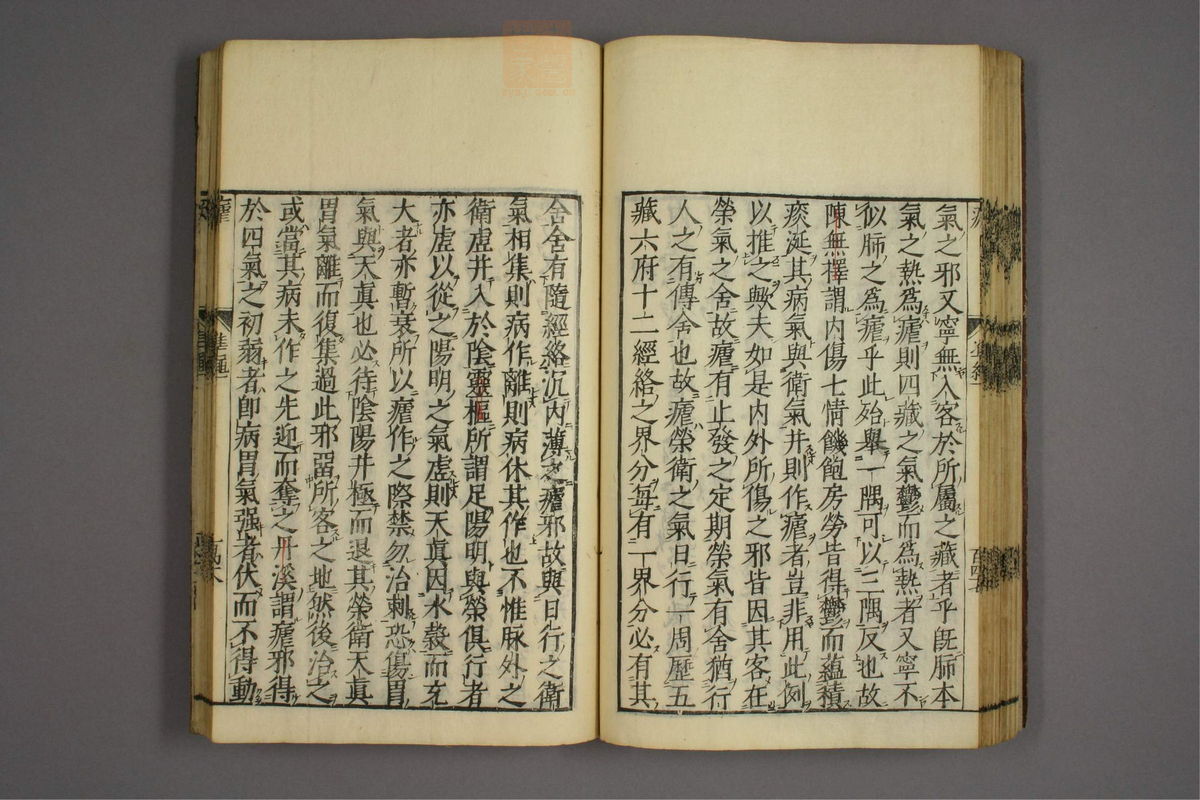 氣之邪又寧無入客於所屬之藏者乎旣肺本
氣之熱爲瘧則四藏之氣鬱而爲熱者又寧不
似肺之爲瘧乎此殆舉一隅可以三隅反也故
陳無擇謂內傷七情饑飽房勞皆得鬱而蘊積
痰涎其病氣與衛氣并則作瘧者豈非用此例
以推之歟夫如是內外所傷之邪皆因其客在
榮氣之舍故瘧有止發之定期榮氣有舍猶行
人之有傳舍也故瘧榮衛之氣日行一周歷五
藏六府十二經絡之界分每有一界分必有其
舍舍有隨經絡沉內薄之瘧邪故與日行之衛
氣相集則病作離則病休其作也不惟脉外之
衛虛并入於陰靈樞所謂足陽明與榮俱行者
亦虛以從之陽明之氣虛則天眞因水穀而充
大者亦暫衰所以瘧作之際禁勿治刺恐傷胃
氣與天眞也必待陰陽并極而退其榮衛天眞
胃氣離而復集過此邪留所客之地然後治之
或當其病未作之先迎而奪之丹溪謂瘧邪得
於四氣之初弱者即病胃氣强者伏而不得動